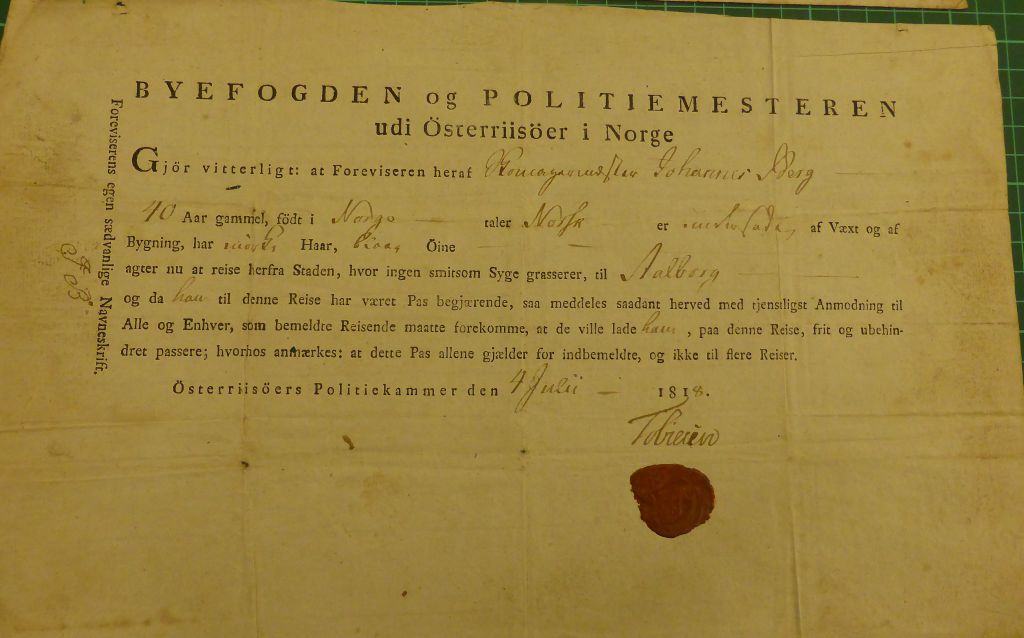 BYEFOGDEN og POLITIEMESTEREN
udi Österriisöer i Norge
Gjör vitterligt: at Foreviseren heraf Skomagermester Johannes Berg
40 Aar gammel, födt i Norge taler Norsk er undersads, af Væxt og af
Bygning, har mørk Haar, blaae Öine
agter nu at reise herfra Staden, hvor ingen smitsom Syge grasserer, til Aalborg
og da han til denne Reise har været Pas begjærende, saa meddeles saadant herved med tjenstligst Anmodning til
Alle og Enhver, som bemeldte Reisende maatte forekomme, at de ville lade ham, paa denne Reise, frit og ubehin-
dret passere; hvorhos anmærkes: at dette Pas allene gjælder for indbemeldte, og ikke til flere Reiser.
Österriisöers Politiekammer den 4 Julii 1818.
Tobiesen
Foreviserens egen sædvanlige Navneskrift.